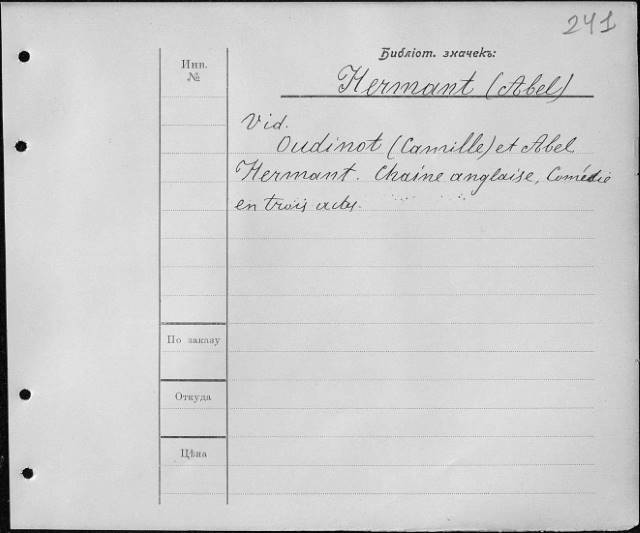 241
Библіот. значекъ:
Инв.
№
Hermant (Abel)
Vid.
Oudinot (Camille) et Abel
Hermant. Chaîne anglaise, Comédie
en trois actes.
По заказу
Откуда
Цѣна